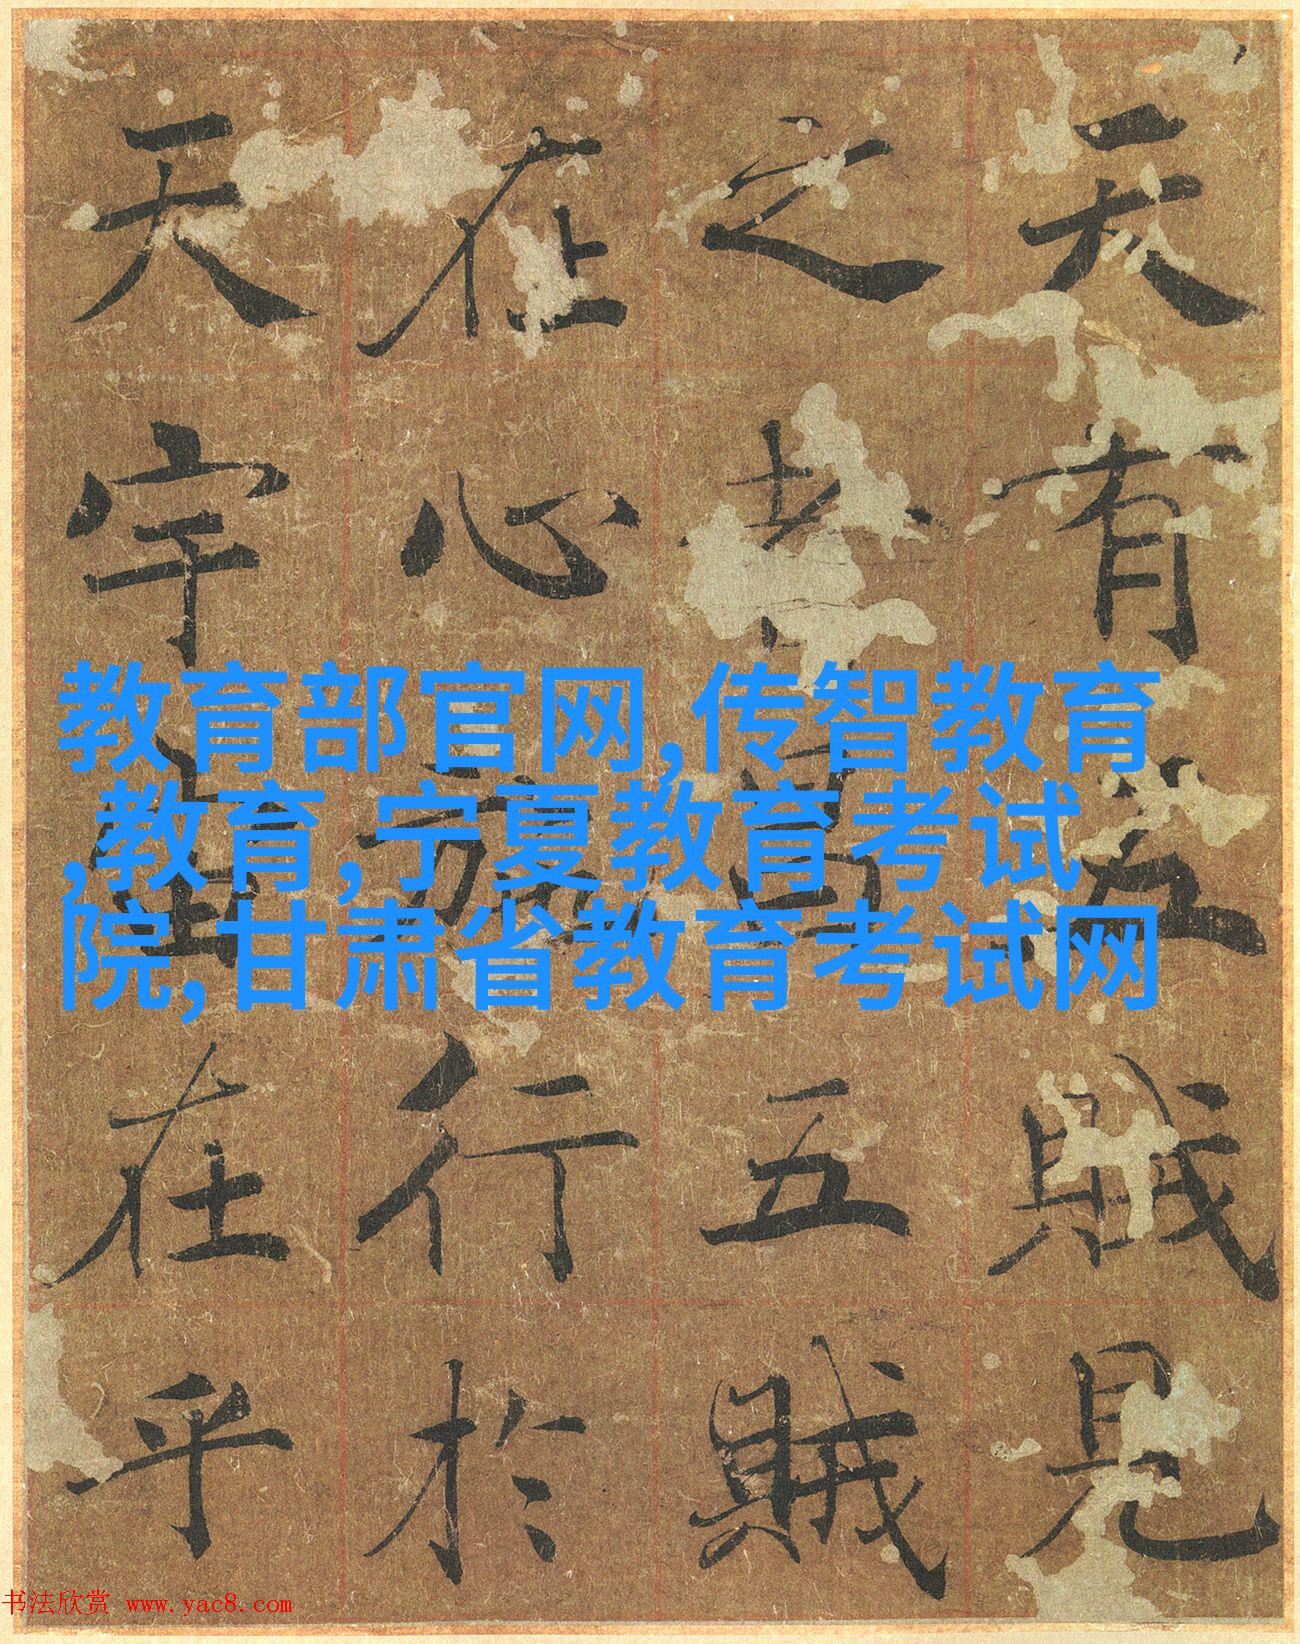 天有五賊見
之者昌五賊
在心施行於
天宇宙在乎
教育部官网,传智教育
,教育,宁夏教育考试
院,甘肃省教育考试网
书法欣赏 www.yac8.com